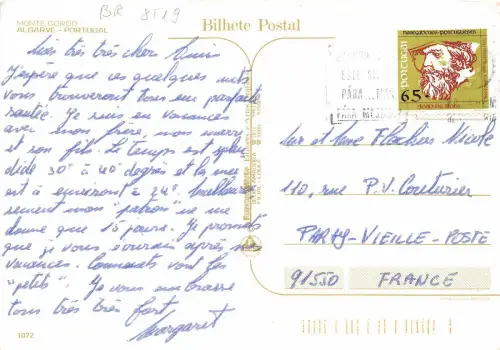 BR 8519
MONTE GORDO
ALGARVE - PORTUGAL
Bilhete Postal
Mes très très chers Amis
J'espère que ces quelques mots
vous trouveront tous en parfaite
santée. Je suis en vacances
avec mon frère, mon marry
et son fils. Le temps est splen
dide 30° à 40° degrès et la mer
est à environt à 24°. Malheureu
sement mon "patron" ne me
donne que 15 jours. Je promets
que je vous écrirai après mes
vacances. Comments vont les
"petits". Je vous embrasse
tous très très fort.
Margaret
1072
navegadores portugueses
PORTUGAL
6.5
PARA
Sur et Mme Flochers Nicole
110, rue P.V. Couturier
PARAY-VIEILLE-POSTE
91550 FRANCE